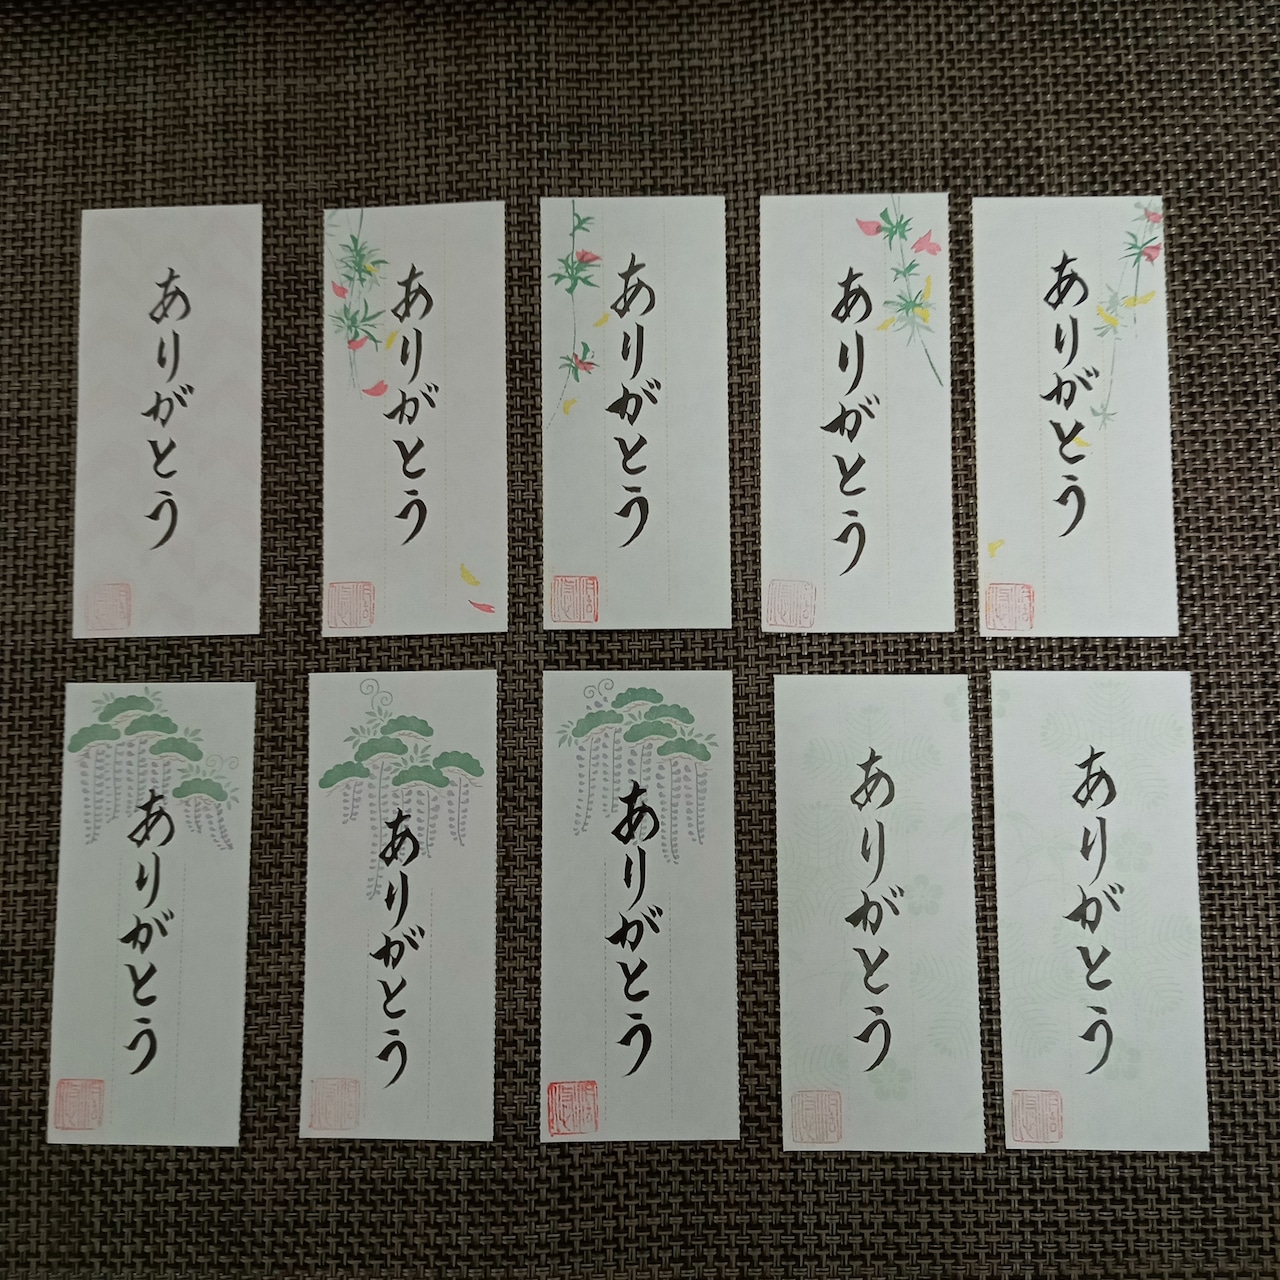 ありがとう
ありがとう
ありがとう
ありがとう
ありがとう
ありがとう
ありがとう
ありがとう
ありがとう
ありがとう